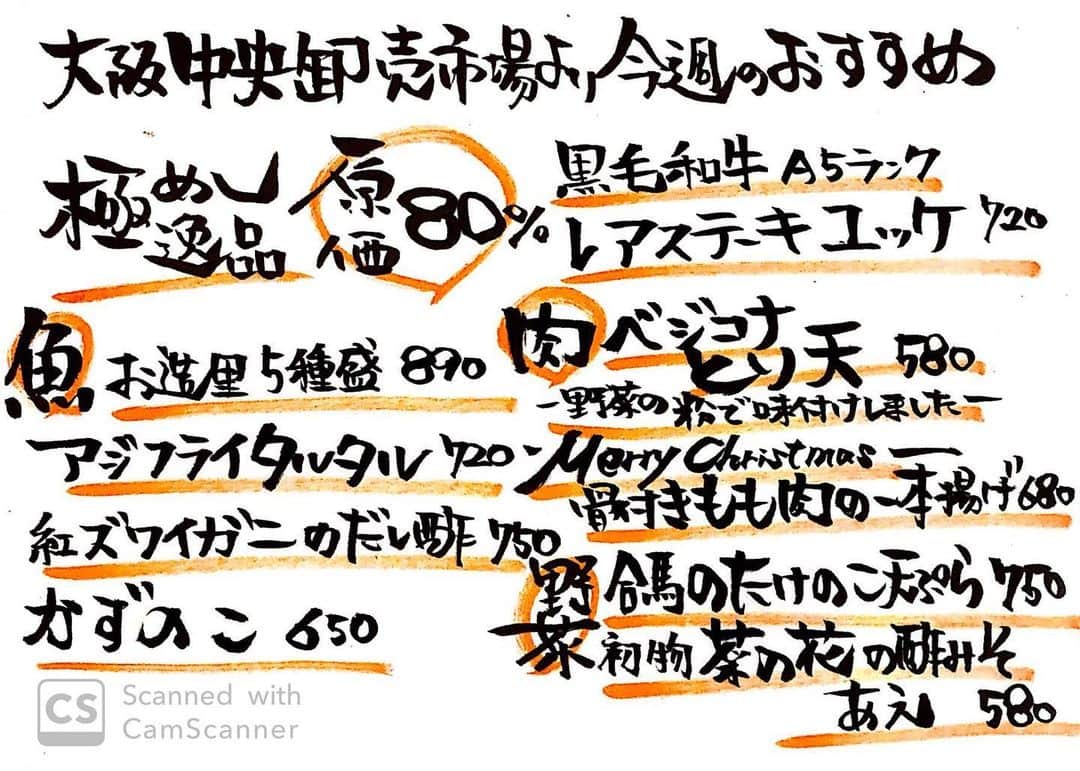 大阪中央卸売市場より今週のおすすめ
極めし
逸品
原価80%
黒毛和牛 A5ランク
レアステーキユッケ 720
魚
お造里5種盛 890
アジフライタルタル 720
紅ズワイガニのだし酢 750
かずのこ 650
肉
ベジコナ
とり天 580
ー野菜の粉で味付けしましたー
Merry Christmas
骨付きもも肉の一本揚げ 680
野菜
合馬のたけのこ天ぷら 750
初物 菜の花の酢みそ
あえ 580
CS Scanned with
CamScanner